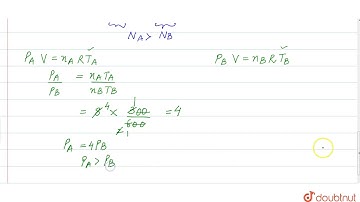 N_A > N_B
P_A V = n_A R T_A ✓
P_B V = n_B R T_B ✓
P_A / P_B = n_A T_A / n_B T_B
= 8 4 × 300 1 / 600 2 1 = 4
P_A = 4P_B
P_A > P_B
doubtnut